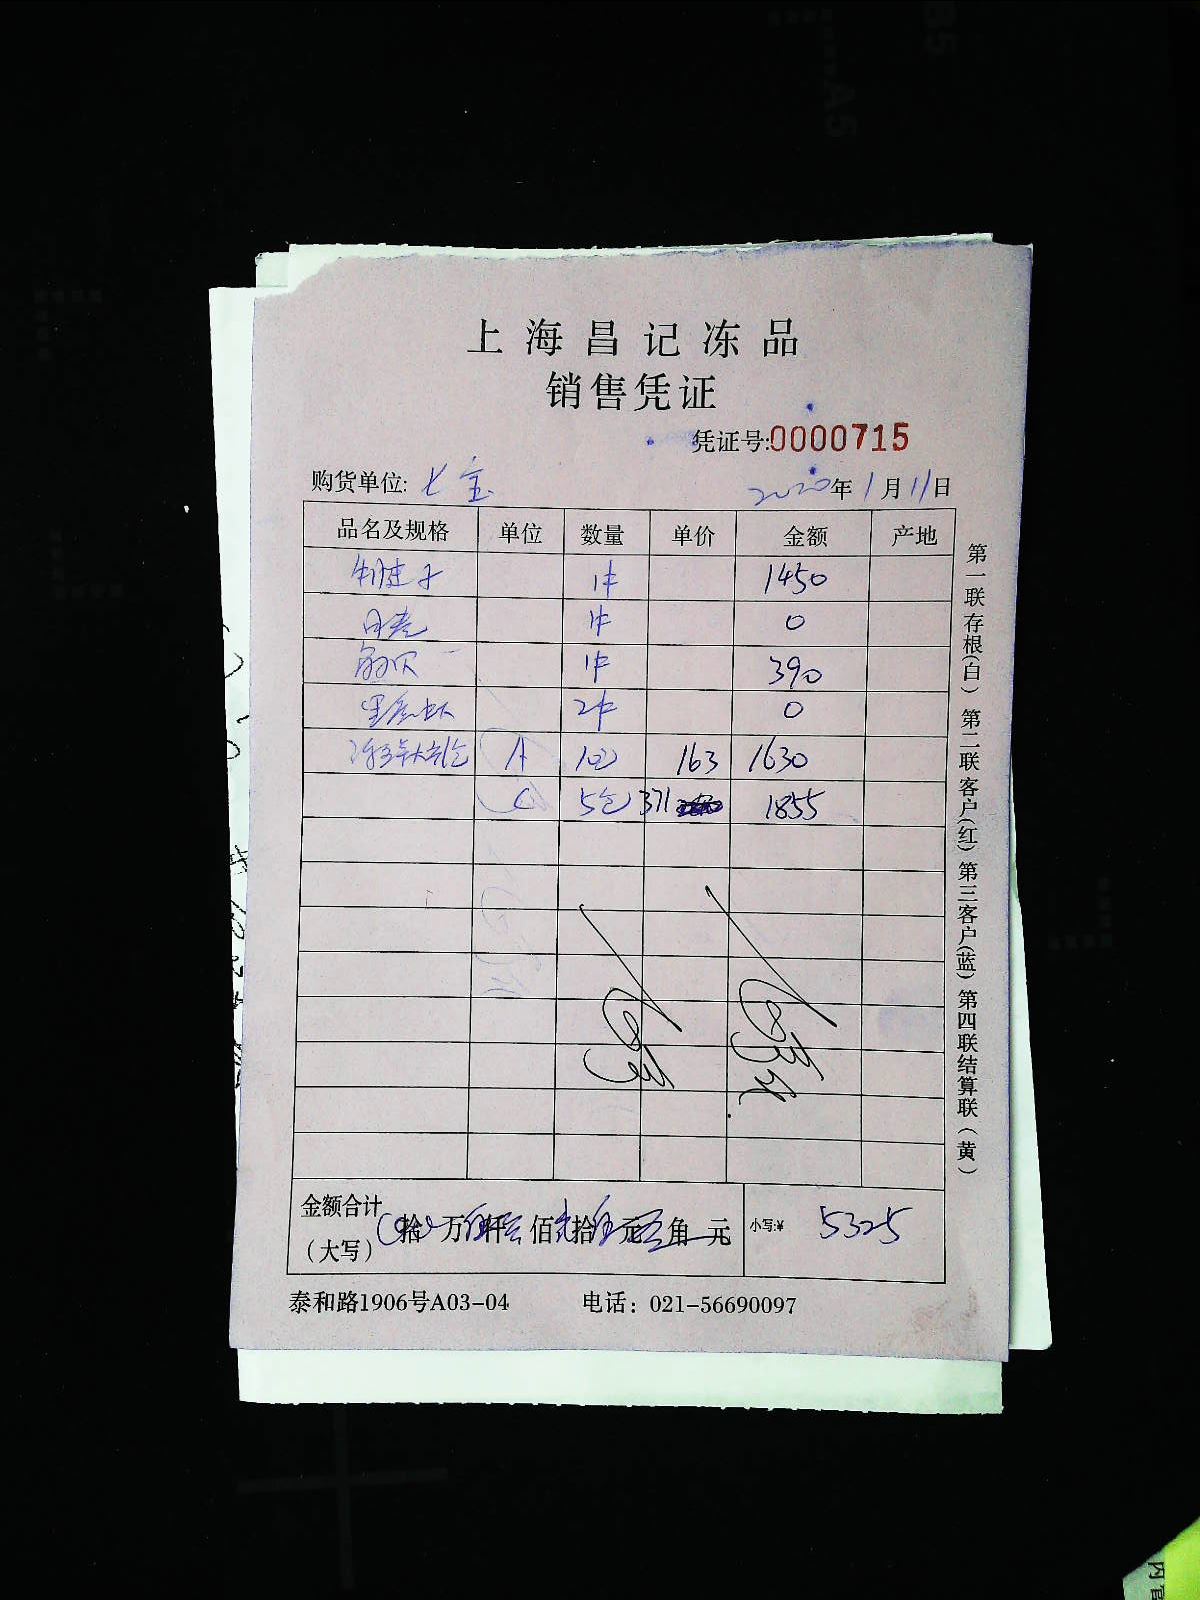 上海昌记冻品
销售凭证
凭证号:0000715
购货单位: 七宝 2020年1月11日
品名及规格 单位 数量 单价 金额 产地
牛腱子 1件 1450
1件 0
1件 390
黑虎虾 2件 0
A 10包 163 1630
C 5包 371 1855
金额合计 拾 万 仟 佰 拾 元 角 元
（大写） 小写:¥ 5325
泰和路1906号A03-04 电话：021-56690097
第一联存根(白) 第二联客户(红) 第三客户(蓝) 第四联结算联(黄)
B5
A5